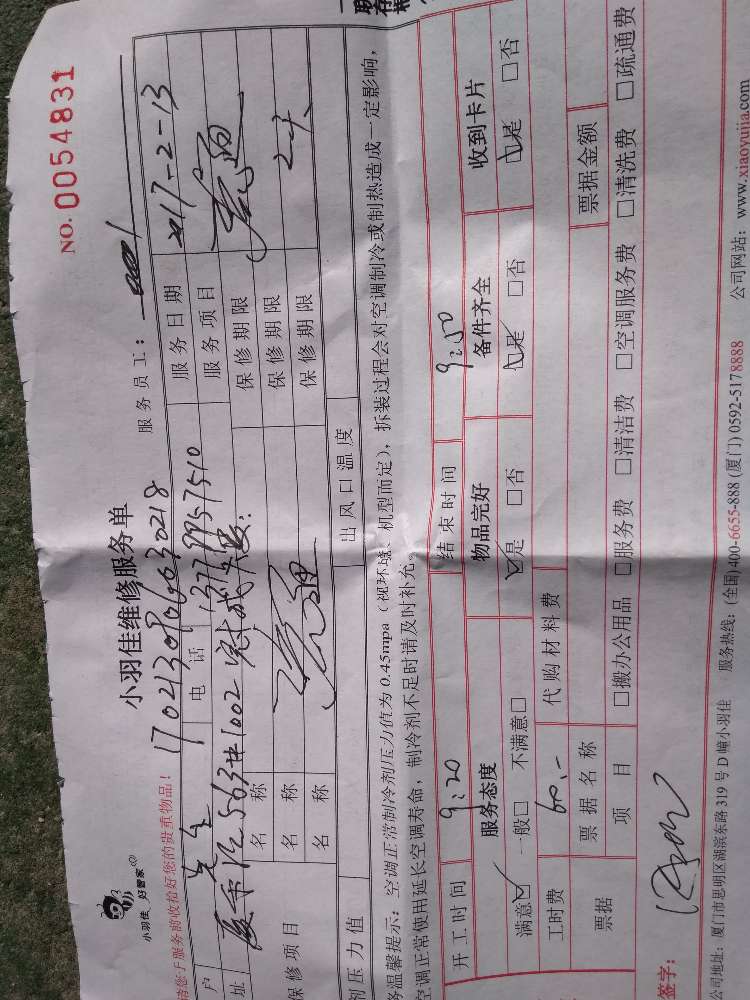 NO. 0054831
小羽佳 好管家
小羽佳维修服务单
服务员工：
请您于服务前收拾好您的贵重物品！
1702130906030218
户 先生 电话 13779957510 服务日期 2017-2-13
址 563#1002 服务项目
保修项目 名称 保修期限
名称 保修期限 2天
名称 保修期限
剂压力值 出风口温度
务温馨提示：空调正常制冷剂压力值为 0.45mpa（视环境、机型而定），拆装过程会对空调制冷或制热造成一定影响，
空调正常使用延长空调寿命，制冷剂不足时请及时补充。
开工时间 9:20 结束时间 9:50
服务态度 物品完好 备件齐全 收到卡片
满意☑ 一般□ 不满意□ ☑是 □否 ☑是 □否 ☑是 □否
工时费 60.- 代购材料费
票据 票据名称 票据金额
项目 □搬办公用品 □服务费 □清洁费 □空调服务费 □清洗费 □疏通费
签字：
公司地址：厦门市思明区湖滨东路 319 号 D 幢小羽佳 服务热线：(全国)400-6655-888 (厦门) 0592-5178888 公司网站：www.xiaoyujia.com